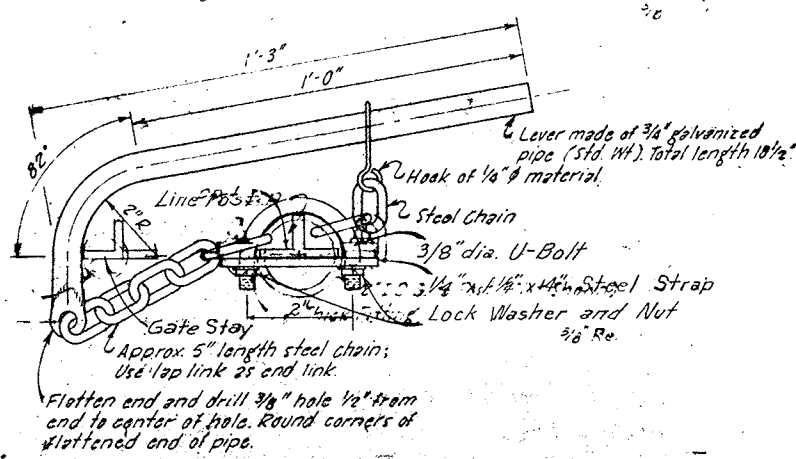 3/8
1'-3"
1'-0"
82°
Lever made of 3/4" galvanized
pipe (Std. Wt). Total length 18 1/2"
Hook of 1/4" ø material.
2" R.
Line Post
Steel Chain
3/8" dia. U-Bolt
1/4" x 1 1/2" x 4" Steel Strap
2"
Lock Washer and Nut
3/8" Re.
Gate Stay
Approx. 5" length steel chain;
Use lap link as end link.
Flatten end and drill 3/8" hole 1/2" from
end to center of hole. Round corners of
flattened end of pipe.